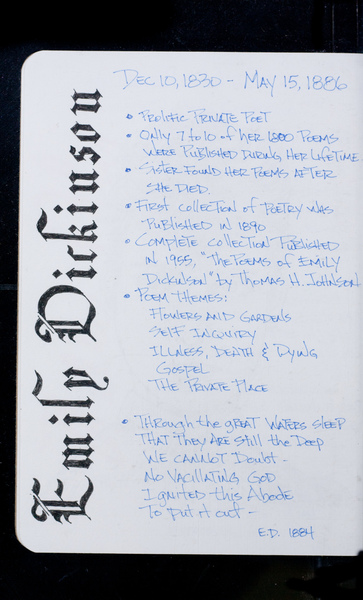 Emily Dickinson
Dec 10, 1830 - May 15, 1886
• Prolific Private Poet
• Only 7 to 10 of her 1800 Poems
were Published During Her Lifetime
• Sister Found Her Poems After
She Died.
• First collection of Poetry was
Published in 1890
• Complete Collection Published
in 1955, "The Poems of Emily
Dickinson" by Thomas H. Johnson
• Poem Themes:
Flowers and Gardens
Self Inquiry
Illness, Death & Dying
Gospel
The Private Place
• Through the great Waters sleep
That They are still the Deep
We cannot Doubt -
No Vacillating God
Ignited this Abode
To put it out -
E.D. 1884